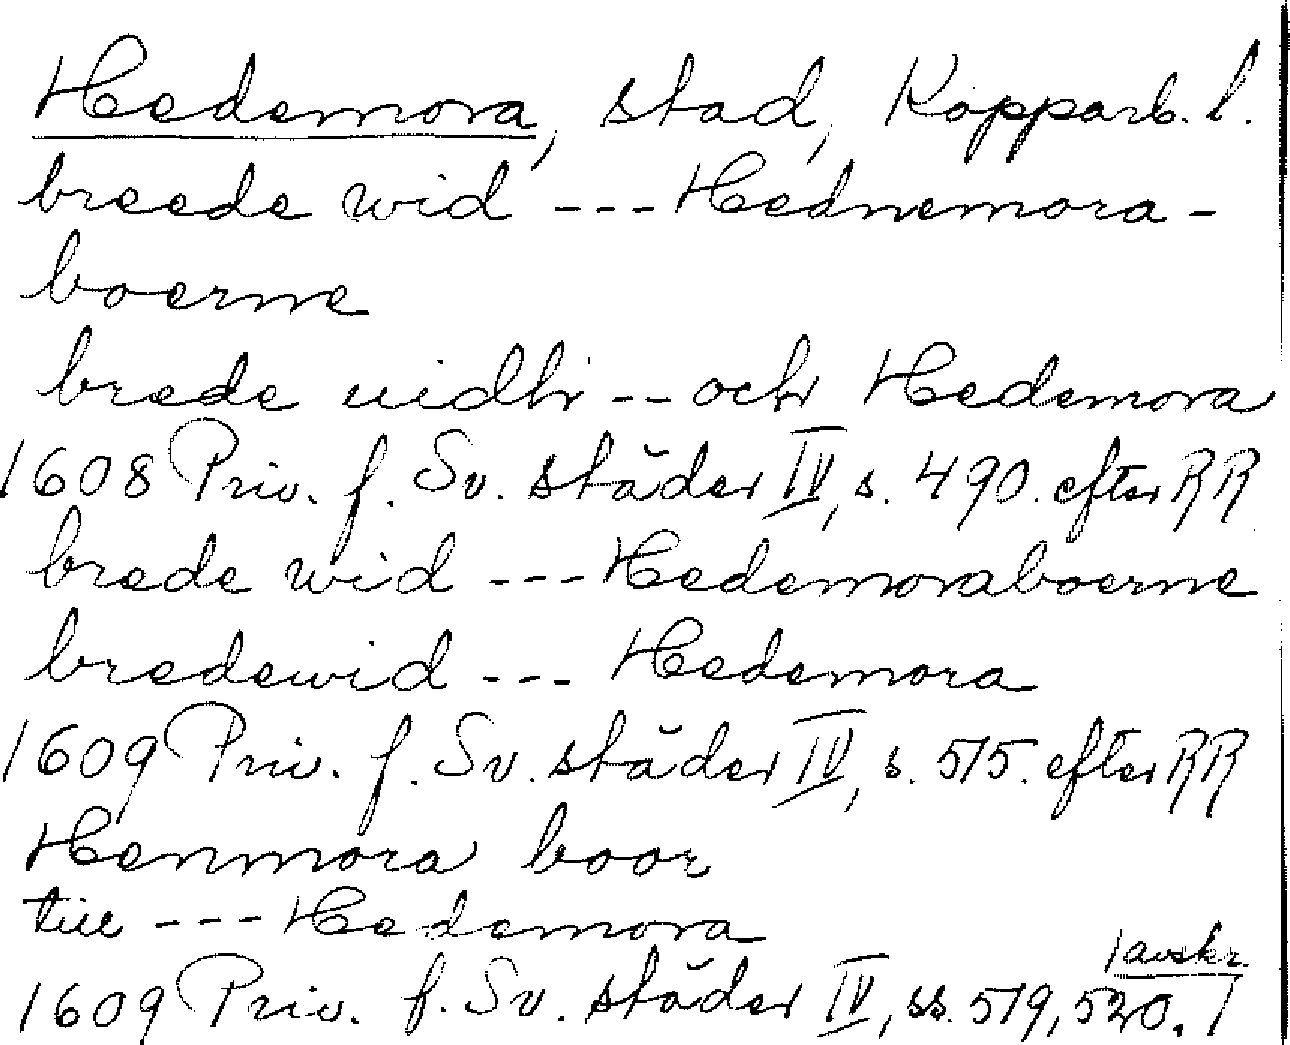 Hedemora, stad, Kopparb. l.
breede wid --- Hednemora-
boerne
brede uidh -- och Hedemora
1608 Priv. f. Sv. städer IV, s. 490. efter RR
brede wid --- Hedemoraboerne
bredewid --- Hedemora
1609 Priv. f. Sv. städer IV, s. 515. efter RR
Henmora boor
till --- Hedemora
1609 Priv. f. Sv. städer IV, ss. 519, 520. /avskr./